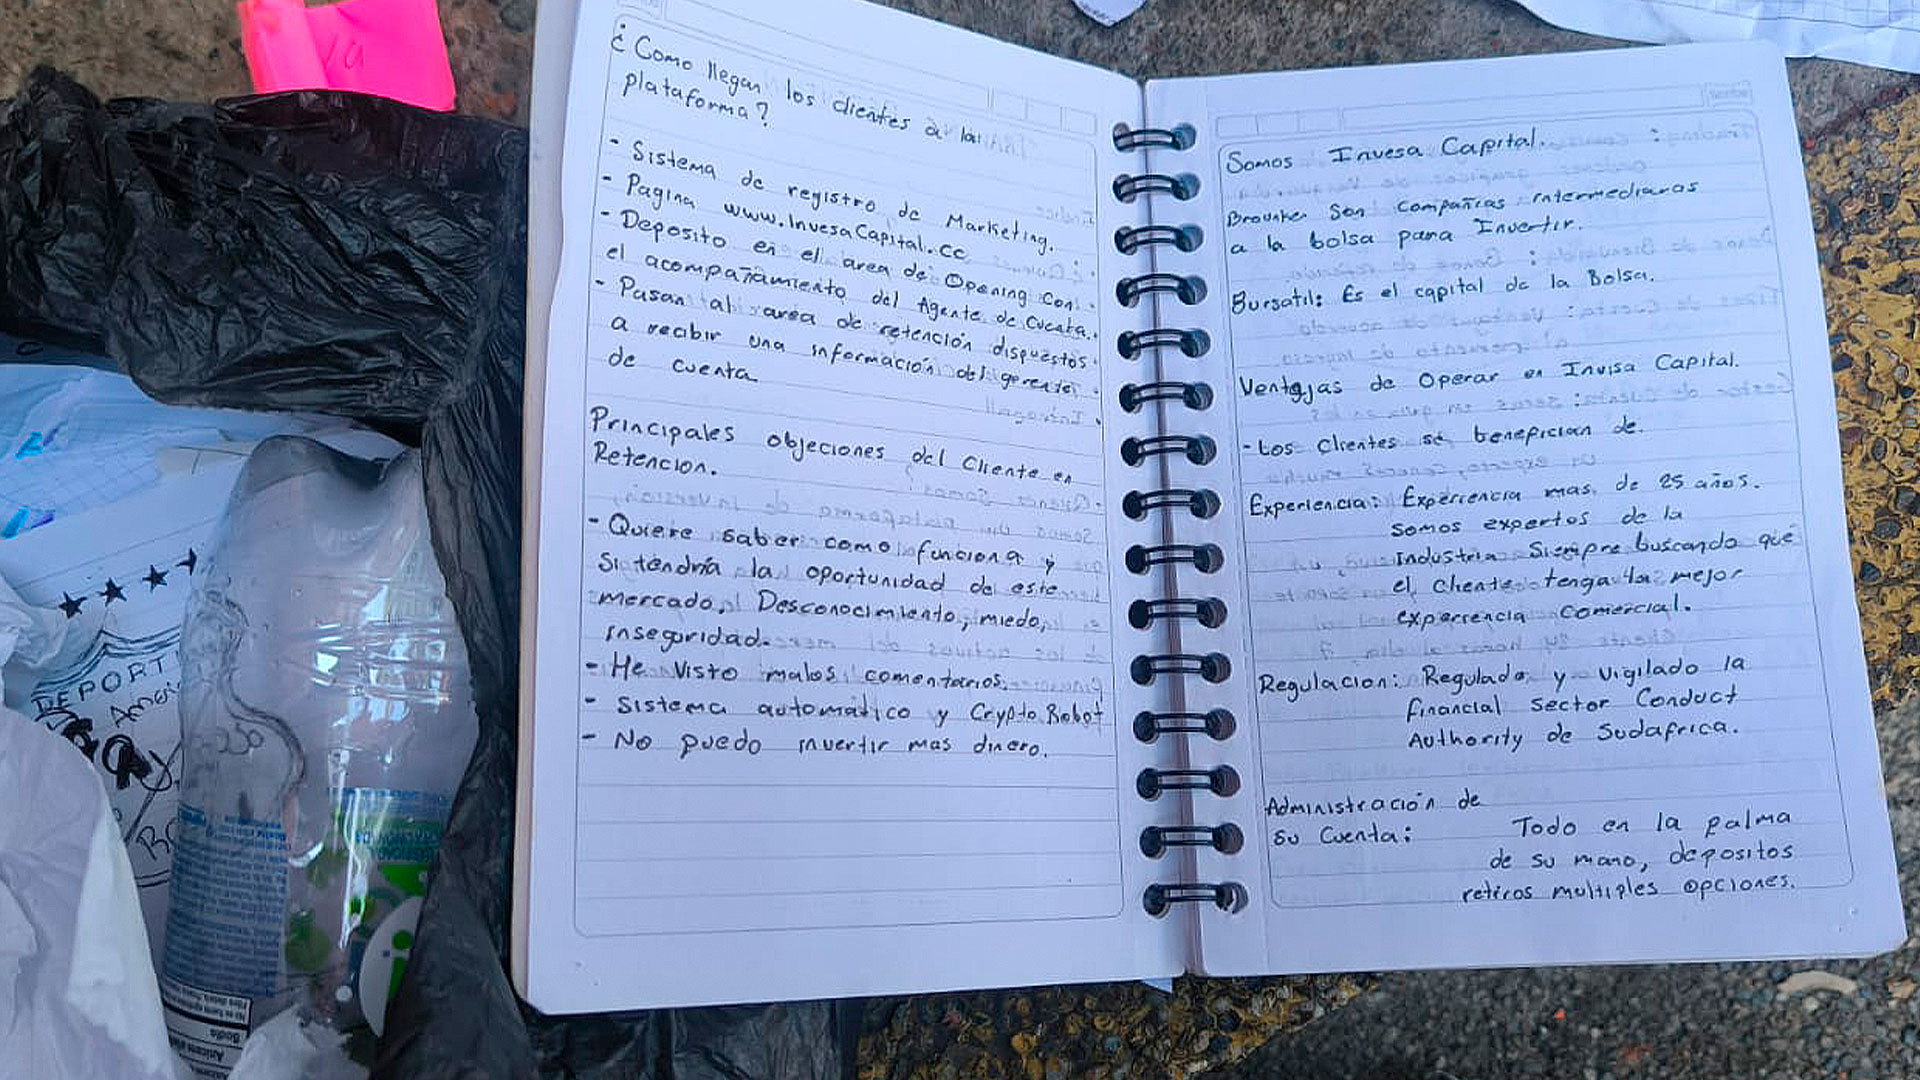 ¿Como llegan los clientes a la
plataforma?
- Sistema de registro de Marketing.
- Pagina www.InvesaCapital.cc
- Deposito en el area de Opening con
el acompañamiento del Agente de Cuenta.
- Pasan al area de retención dispuestos
a recibir una información del gerente
de cuenta
Principales objeciones del Cliente en
Retencion.
- Quiere saber como funciona y
si tendría la oportunidad de este
mercado, Desconocimiento, miedo,
inseguridad.
- He visto malos comentarios.
- Sistema automatico y Crypto Robot
- No puedo invertir mas dinero.
Somos Invesa Capital.
Brounke son compañias intermediaras
a la bolsa para Invertir.
Bursatil: Es el capital de la Bolsa.
Ventajas de Operar en Invisa Capital.
- Los Clientes se benefician de.
Experiencia: Experiencia mas de 25 años.
somos expertos de la
industria Siempre buscando que
el cliente tenga la mejor
experiencia comercial.
Regulacion: Regulado y vigilado la
financial sector Conduct
Authority de Sudafrica.
Administración de
su Cuenta: Todo en la palma
de su mano, depositos
retiros multiples opciones.
REPORT